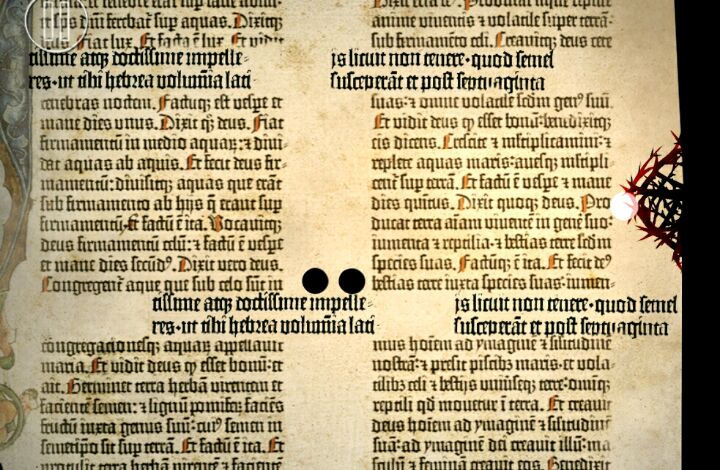 tenebras noctem. Factuq; est vespe et
mane dies vnus. Dixit q; deus. Fiat
firmamentū in medio aquaꝝ: ⁊ divi-
dat aquas ab aquis. Et fecit deus fir-
mamentū: divisitq; aquas que erāt
sub firmamento ab hijs q̄ erant sup
firmamentū: Et factū ē ita. Vocavitq;
deus firmamentū celū: ⁊ factū ē vespe
et mane dies secūd9. Dixit vero deus.
Congregent̄ aque que sub celo sūt in
tissime atq; doctissime impelle-
res·ut tibi hebrea volumīa lati
congregacionesq; aquaꝝ appellavit
maria. Et vidit deus q̄ esset bonū· et
ait. Germinet terra herbā virentem et
facientē semen: ⁊ lignū pomifeꝝ faciēs
fructū iuxta genus suū: cui9 semen in
semetipo sit sup terrā. Et factū ē ita. Et
protulit terra herbā
tissime atq; doctissime impelle-
res·ut tibi hebrea volumīa lati
sup aquas. Dixitq;
Fiat lux. Et facta ē lux. Et vidit
anime viventis ⁊ volatile super terrā·
sub firmamēto celi. Creavitq; deus cete
is licuit non tenere·quod semel
susceperāt et post septuaginta
suas· ⁊ omne volatile sc̄dm gen9 suū.
Et vidit deus q̄ esset bonū· bn̄dixitq;
eis dicens. Crescite ⁊ mltiplicamini· ⁊
replete aquas maris· avesq; mltipli-
cent̄ sup terrā. Et factū ē vespe ⁊ mane
dies quītus. Dixit quoq; deus. Pro
ducat terra aīam viventē in genē suo·
iumenta ⁊ reptilia· ⁊ bestias terre sc̄dm
species suas. Factūq; ē ita. Et fecit de9
bestias terre iuxta species suas: iumen-
is licuit non tenere·quod semel
susceperāt et post septuaginta
mus hoīem ad ymaginē ⁊ silitudinē
nostrā· ⁊ presit piscib; maris· et vola-
tilib; celi ⁊ bestijs universeq; terre· omīq;
reptili qd movetur ī terra. Et creavit
deus hoīem ad ymaginē ⁊ silitudinē
suā· ad ymaginē dei creavit illū· ma
⁊ feminā creavit eos. Benedixit